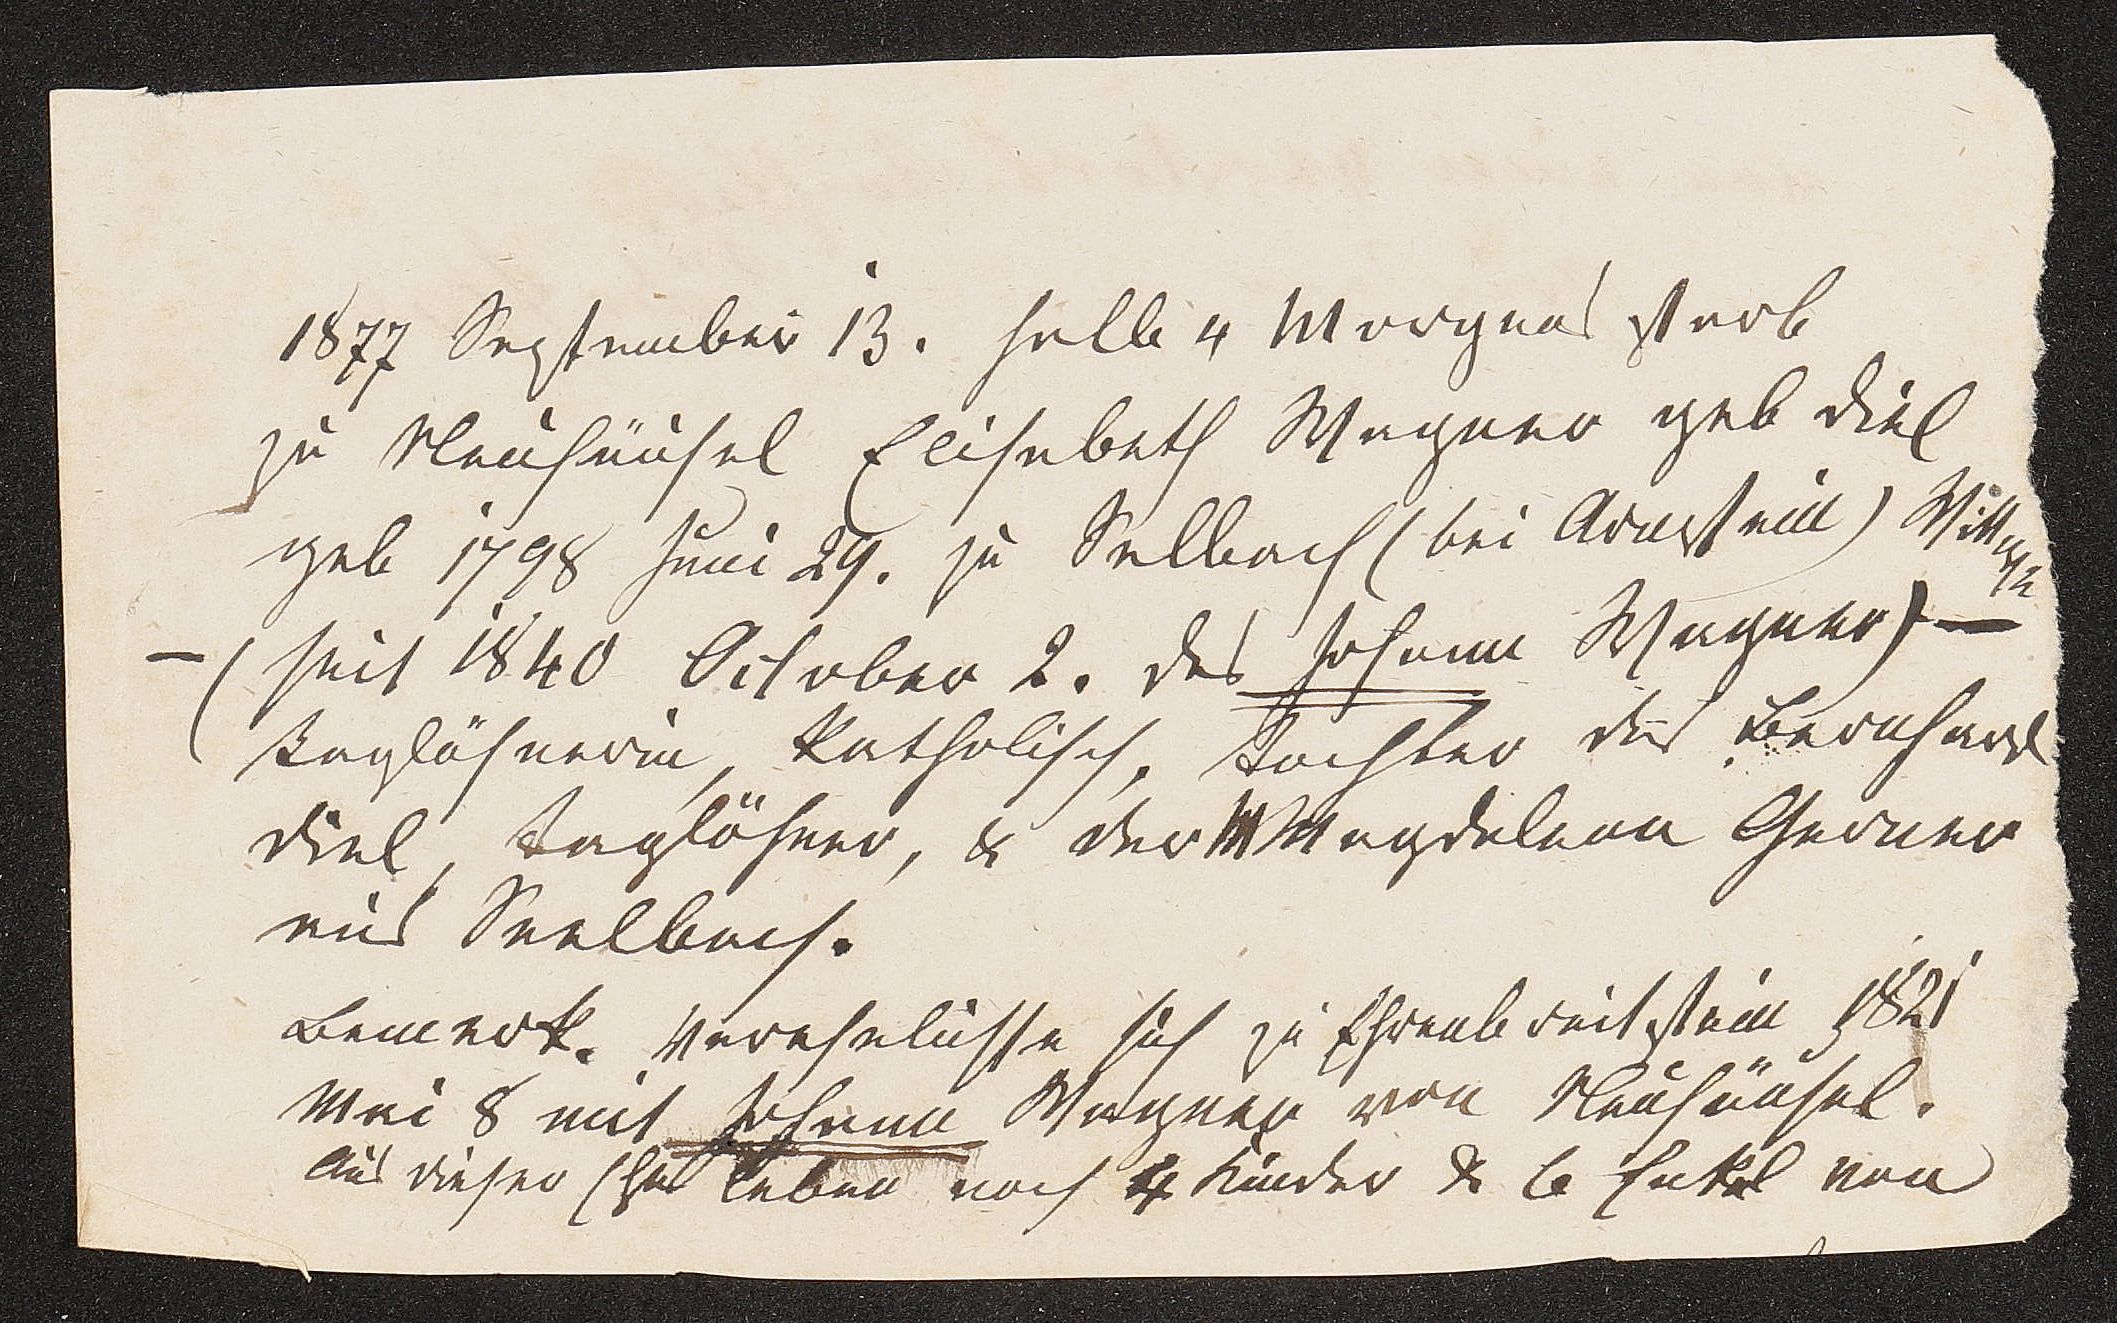 1877 September 13. halb 4 Morgens starb
zu Neuhäusel Elisabeth Wagner geb Diel
geb 1798 Juni 29. zu Selbach (bei Arnstein) Wittwe
– (seit 1840 October 2. des Johann Wagner) –
Taglöhnerin, katholisch, Tochter des Bernhard
Diel, Taglöhner, & der Magdalena Gerner
aus Seelbach.
Bemerk. Verehelichte sich zu Ehrenbreitstein 1821
Mai 8 mit Johann Wagner von Neuhäusel.
Aus dieser Ehe leben noch 4 Kinder & 6 Enkel von